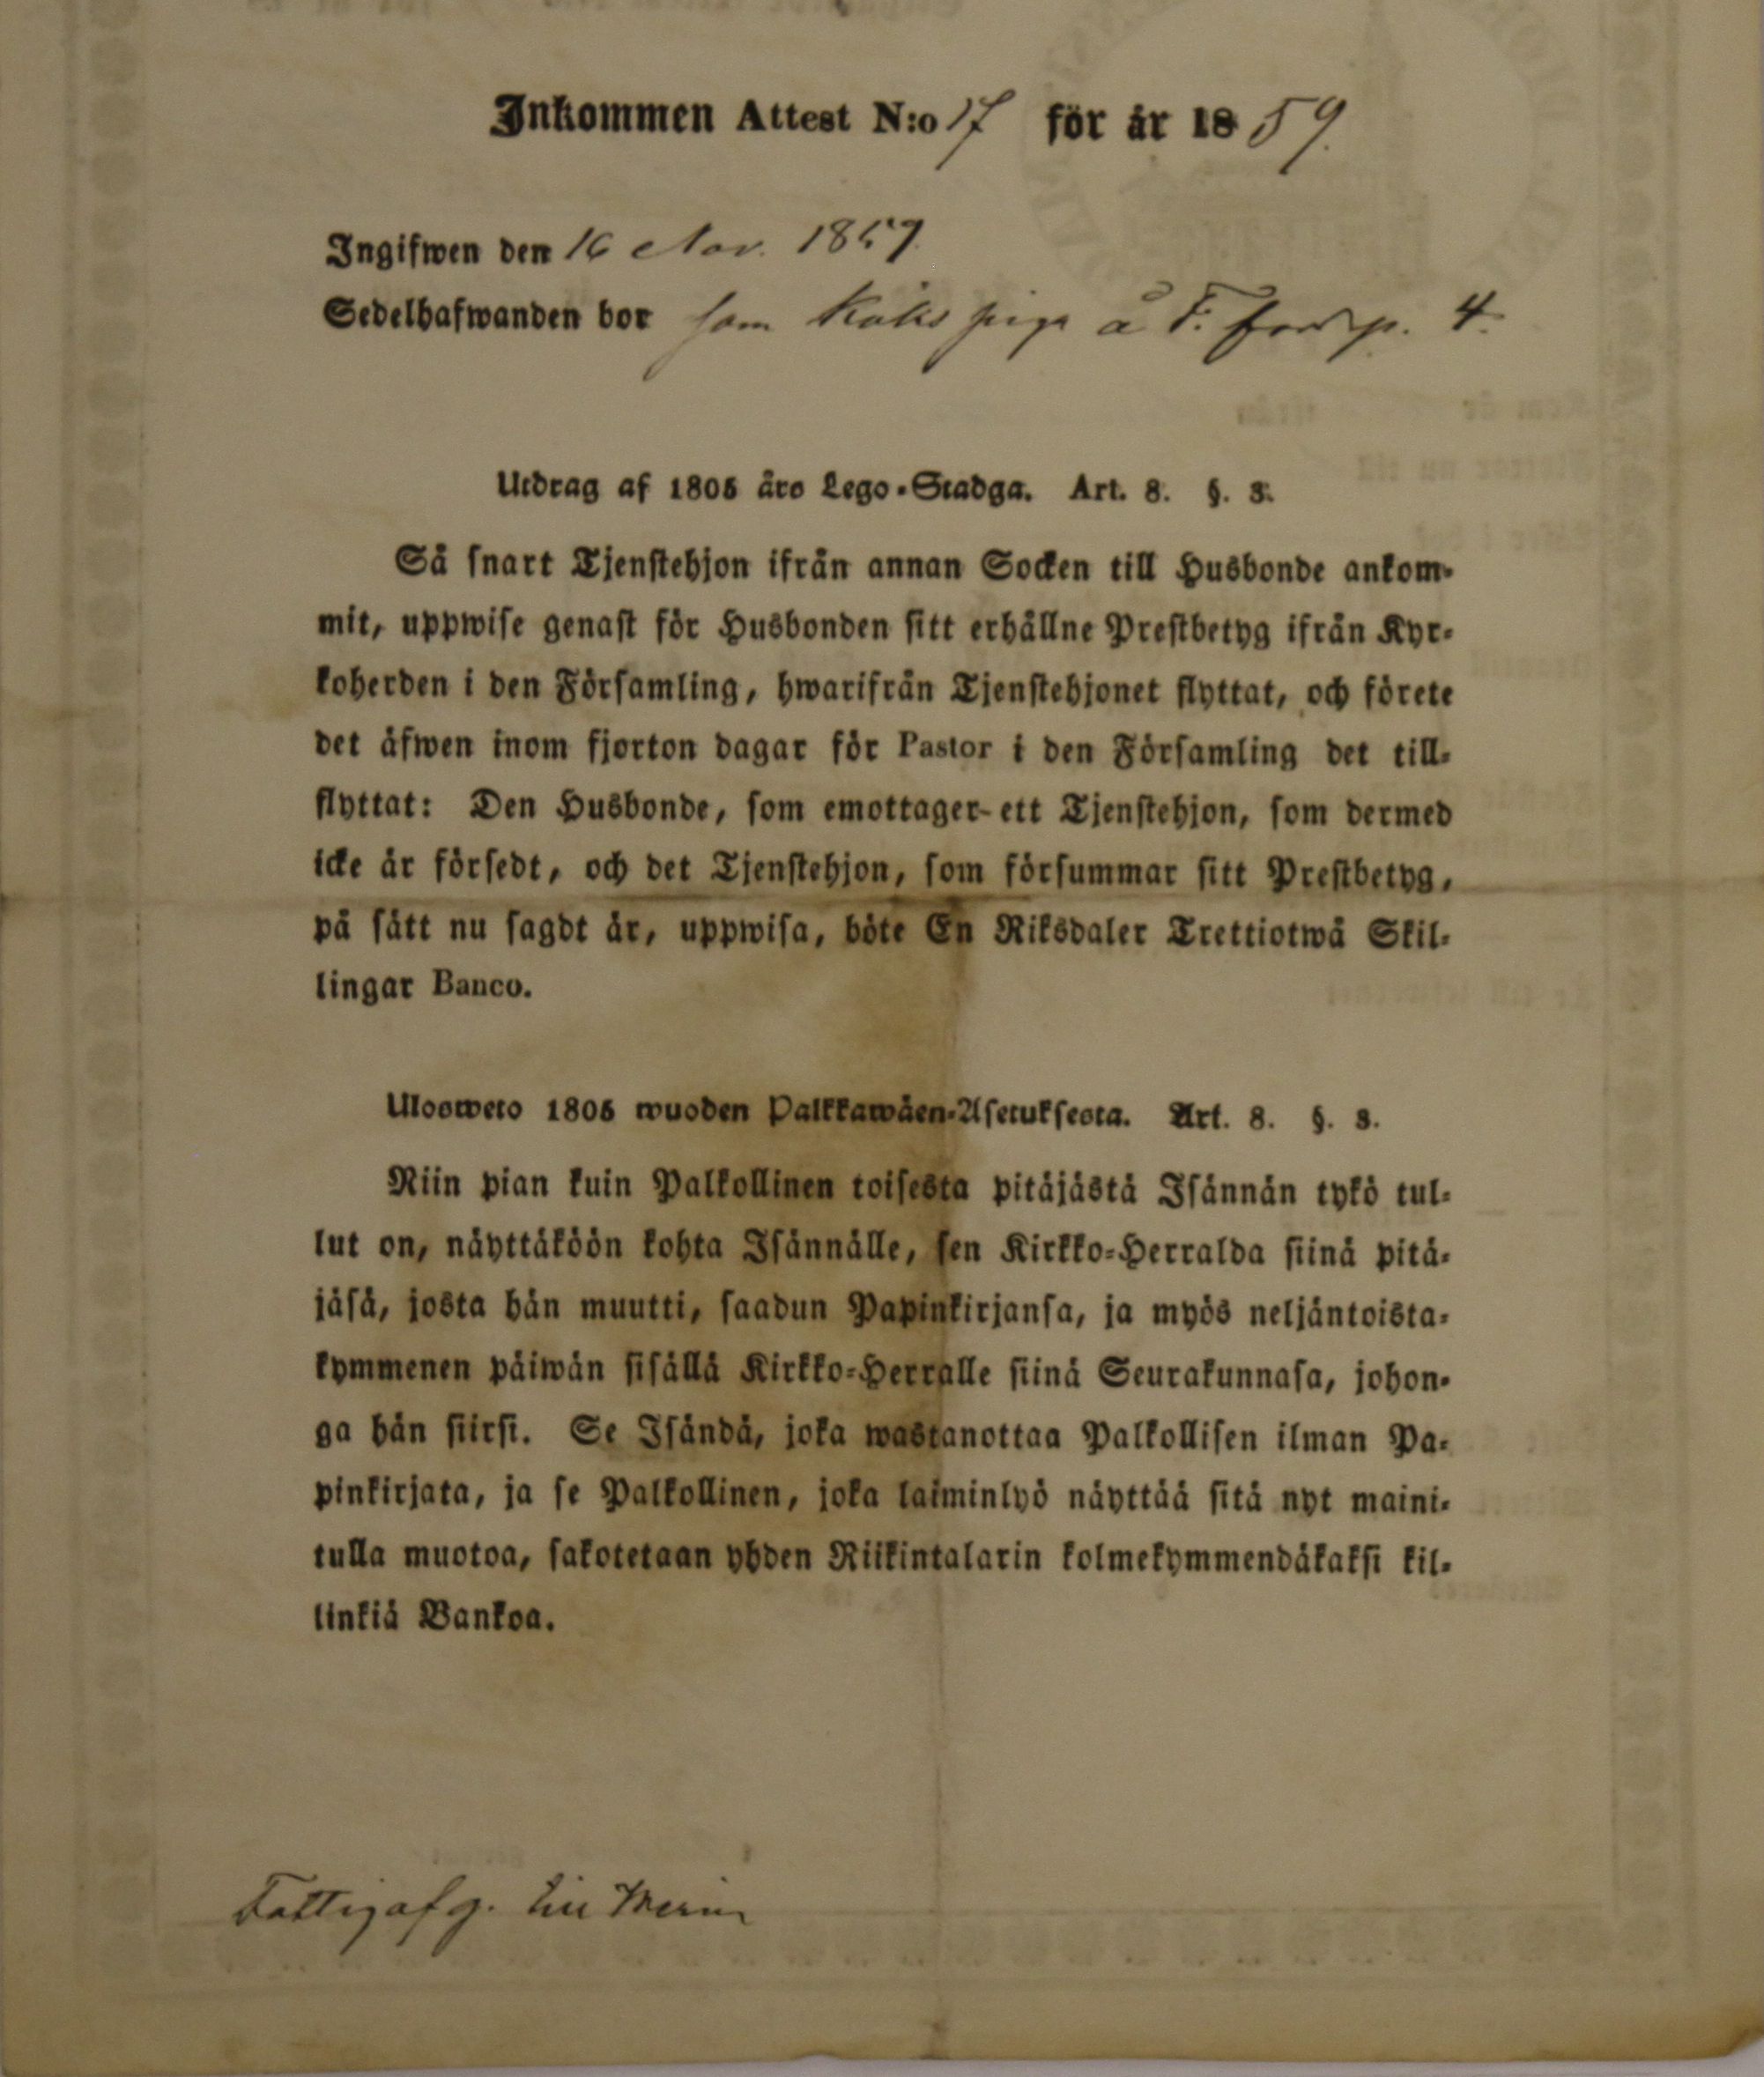 Inkommen Attest N:o 17 för år 1859.
Ingifwen den 16 Nov. 1859.
Sedelhafwanden bor som Köks piga å F: p. 4.
Utdrag af 1805 års Lego-Stadga. Art. 8. §. 3.
Så snart Tjenstehjon ifrån annan Socken till Husbonde ankom-
mit, uppwise genast för Husbonden sitt erhållne Prestbetyg ifrån Kyr-
koherden i den Församling, hwarifrån Tjenstehjonet flyttat, och förete
det äfwen inom fjorton dagar för Pastor i den Församling det till-
flyttat: Den Husbonde, som emottager ett Tjenstehjon, som dermed
icke är försedt, och det Tjenstehjon, som försummar sitt Prestbetyg,
på sätt nu sagdt är, uppwisa, böte En Riksdaler Trettiotwå Skil-
lingar Banco.
Ulosweto 1805 wuoden Palkkawäen-Asetuksesta. Art. 8. §. 3.
Niin pian kuin Palkollinen toisesta pitäjästä Isännän tykö tul-
lut on, näyttäköön kohta Isännälle, sen Kirkko-Herralda siinä pitä-
jäsä, josta hän muutti, saadun Papinkirjansa, ja myös neljäntoista-
kymmenen päiwän sisällä Kirkko-Herralle siinä Seurakunnasa, johon-
ga hän siirsi. Se Isändä, joka wastanottaa Palkollisen ilman Pa-
pinkirjata, ja se Palkollinen, joka laiminlyö näyttää sitä nyt maini-
tulla muotoa, sakotetaan yhden Riikintalarin kolmekymmendäkaksi kil-
linkiä Bankoa.
Fattigafg.